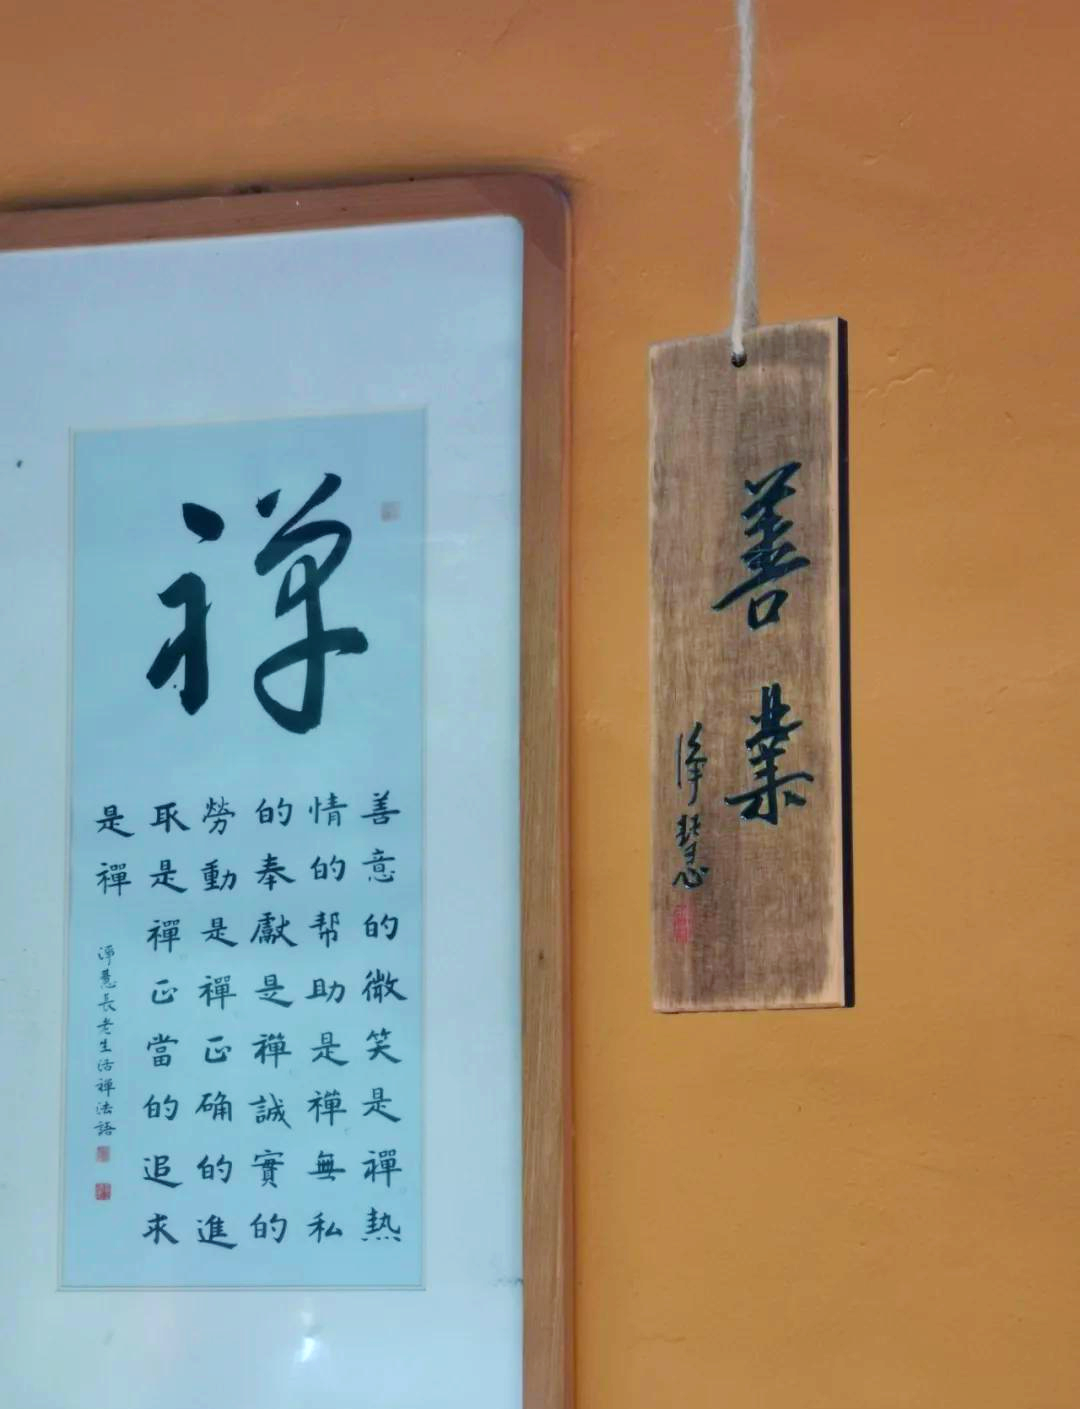 禪
善意的微笑是禪熱
情的帮助是禪無私
的奉獻是禪誠實的
勞動是禪正确的進
取是禪正當的追求
是禪
淨慧長老生活禪法語
善業
淨慧